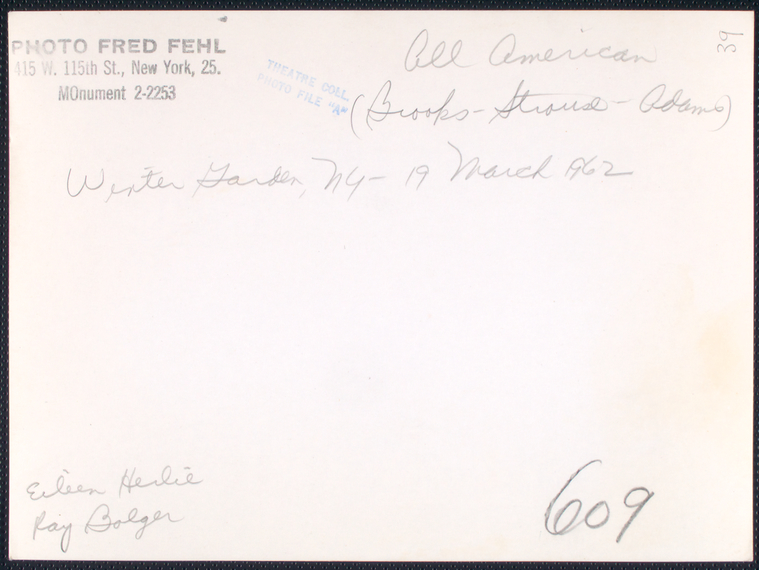 PHOTO FRED FEHL
415 W. 115th St., New York, 25.
MOnument 2-2253
THEATRE COLL.
PHOTO FILE "A"
All American
39
(Brooks - Strouse - Adams)
Winter Garden, NY - 19 March 1962
Eileen Herlie
Ray Bolger
609